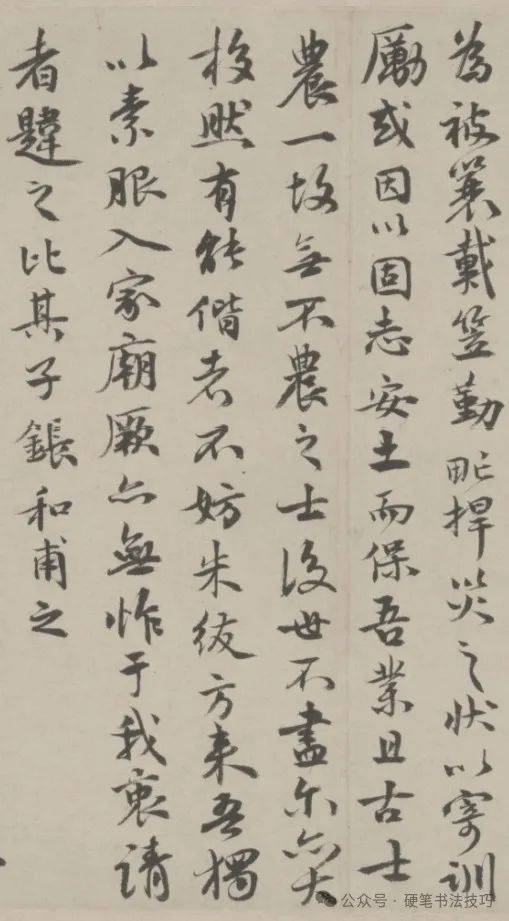 為被蓑戴笠勤甿捍災之狀以寄訓
勵或因以固志安土而保吾業且古士
農一故無不農之士後世不盡尔亦大
校然有能偕者不妨朱紱方来吾獨
以素服入家廟厥亦無怍于我衷請
者韙之比其子鋹和甫之
公众号 · 硬笔书法技巧